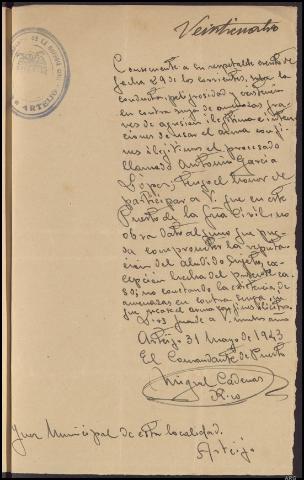 Veinticuatro
ARTEIJO
Consecuente a su respetable escrito de
fecha 29 de los corrientes, sobre la
conducta, peligrosidad y existencia
en contra suya de amenazas graves
de agresión ilegítima e intenciones
de usar el arma con fines
ilegítimos el procesado
llamado Antonio García
López, tengo el honor de
participar a V. que en este
Puesto de la Gua Civil no
obra dato alguno que pueda
comprometer la reputación
del aludido sujeto,
excepción hecha del presente caso,
no constando la existencia de
amenazas en contra suya
Dios guarde a V. muchos años
Arteijo 31 Mayo de 1943
El Comandante de Puesto
Miguel Cadenas
Rico
Juez Municipal de esta localidad.
Arteijo